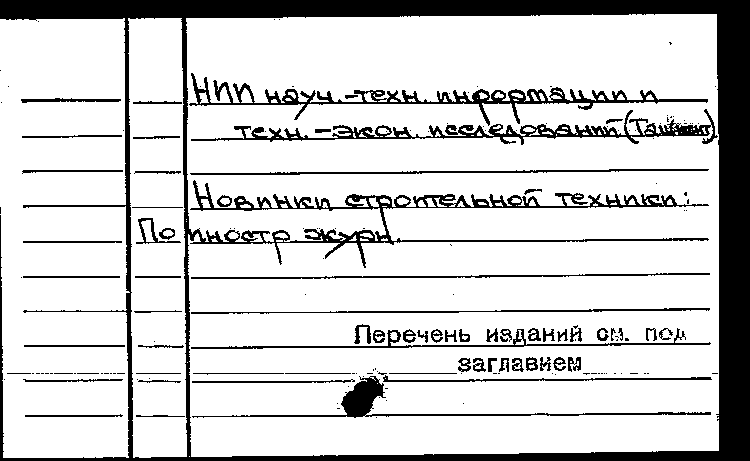 НИИ науч.-техн. информации и
техн.-экон. исследований (Ташкент)
Новинки строительной техники:
По иностр. журн.
Перечень изданий см. под
заглавием